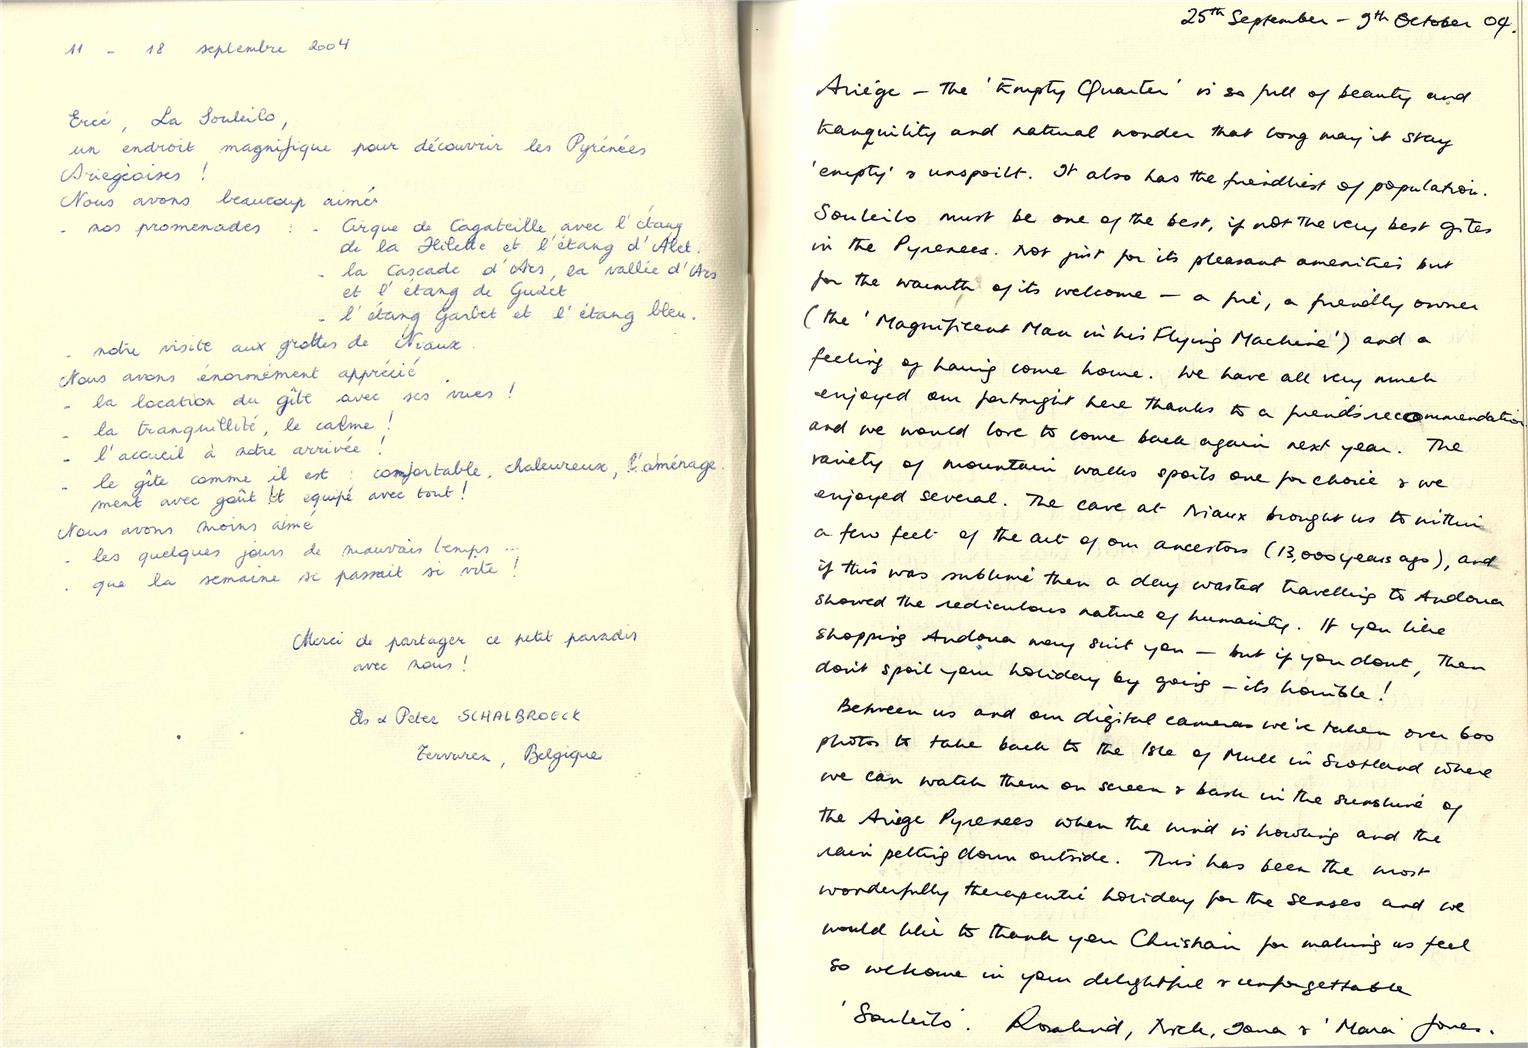 11 - 18 septembre 2004
Ercé, La Souleilo,
un endroit magnifique pour découvrir les Pyrénées
Ariégeoises !
Nous avons beaucoup aimé
- nos promenades : - Cirque de Cagateille avec l'étang
de la Hilette et l'étang d'Alet.
- la Cascade d'Ars, la vallée d'Ars
et l'étang de Guzet
- l'étang Garbet et l'étang bleu.
- notre visite aux grottes de Niaux.
Nous avons énormément apprécié
- la location du gîte avec ses vues !
- la tranquillité, le calme !
- l'accueil à notre arrivée !
- le gîte comme il est : comfortable, chaleureux, l'aménage-
ment avec goût et equipé avec tout !
Nous avons moins aimé
- les quelques jours de mauvais temps ...
- que la semaine se passait si vite !
Merci de partager ce petit paradis
avec nous !
Els & Peter SCHALBROECK
Tervuren, Belgique
25th September - 9th October 04.
Ariége - the 'Empty Quarter' is so full of beauty and
tranquility and natural wonder that long may it stay
'empty' & unspoilt. It also has the friendliest of population.
Souleilo must be one of the best, if not the very best gites
in the Pyrenees. Not just for its pleasant amenities but
for the warmth of its welcome - a fire, a friendly owner
(the 'Magnificent Man in his Flying Machine') and a
feeling of having come home. We have all very much
enjoyed our fortnight here thanks to a friends recommendation
and we would love to come back again next year. The
variety of mountain walks spoils one for choice & we
enjoyed several. The cave at Niaux brought us to within
a few feet of the art of our ancestors (13,000 years ago), and
if this was sublime then a day wasted travelling to Andorra
showed the rediculous nature of humanity. If you like
shopping Andorra may suit you - but if you dont, then
don't spoil your holiday by going - its horrible!
Between us and our digital cameras we've taken over 600
photos to take back to the Isle of Mull in Scotland where
we can watch them on screen & bask in the sunshine of
the Ariège Pyrenees when the wind is howling and the
rain pelting down outside. This has been the most
wonderfully therapeutic holiday for the senses and we
would like to thank you Christian for making us feel
so welcome in your delightful & unforgettable
'Souleilo'. Rosalind, Nick, Iona & 'Mara' Jones.